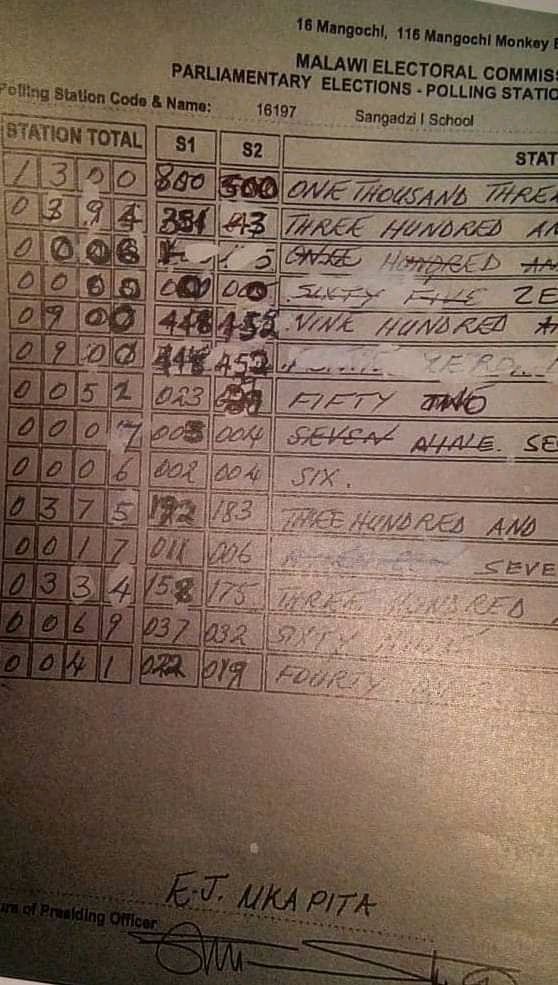 16 Mangochi, 116 Mangochi Monkey
MALAWI ELECTORAL COMMISS
PARLIAMENTARY ELECTIONS - POLLING STATIO
Polling Station Code & Name: 16197 Sangadzi I School
STATION TOTAL S1 S2 STAT
1 3 0 0 800 500 ONE THOUSAND THREE
0 3 9 4 351 43 THREE HUNDRED AN
0 0 0 6 ONEE HUNDRED AN
0 0 0 0 000 000 SIXTY FIVE ZE
0 9 0 0 448 452 NINE HUNDRED A
0 9 0 0 448 452 ZERO
0 0 5 2 023 29 FIFTY TWO
0 0 0 7 003 004 SEVEN NINE. SE
0 0 0 6 002 004 SIX.
0 3 7 5 192 183 THREE HUNDRED AND
0 0 1 7 011 006 SEVE
0 3 3 4 158 175 THREE HUNDRED
0 0 6 9 037 032 SIXTY NINE
0 0 4 1 022 019 FOURTY
E.J. MKAPITA
ure of Presiding Officer